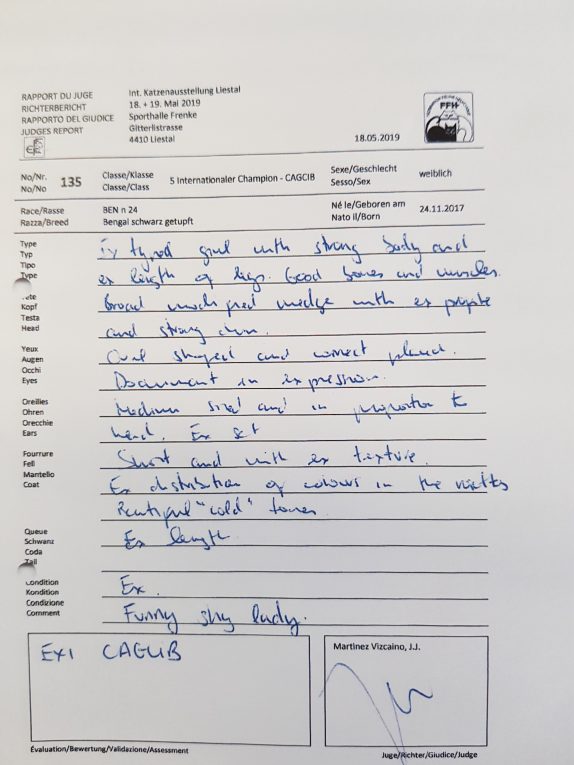 RAPPORT DU JUGE
RICHTERBERICHT
RAPPORTO DEL GIUDICE
JUDGES REPORT
Int. Katzenausstellung Liestal
18. + 19. Mai 2019
Sporthalle Frenke
Gitterlistrasse
4410 Liestal
FFH
18.05.2019
No/Nr.
No/No
135
Classe/Klasse
Classe/Class
5 Internationaler Champion - CAGCIB
Sexe/Geschlecht
Sesso/Sex
weiblich
Race/Rasse
Razza/Breed
BEN n 24
Bengal schwarz getupft
Né le/Geboren am
Nato il/Born
24.11.2017
Type
Typ
Tipo
Type
Ex typed girl with strong body and
ex length of legs. Good bones and muscles.
Kopf
Testa
Head
Broad modified wedge with ex profile
and strong chin.
Yeux
Augen
Occhi
Eyes
Oval shaped and correct placed.
in expression.
Oreilles
Ohren
Orecchie
Ears
Medium sized and in proportion to
head. Ex set
Fourrure
Fell
Mantello
Coat
Short and with ex texture.
Ex distribution of colours in the
Beautiful "cold" tones
Queue
Schwanz
Coda
Tail
Ex length.
Condition
Kondition
Condizione
Comment
Ex.
Funny shy lady.
EX1 CAGCIB
Martinez Vizcaino, J.J.
Évaluation/Bewertung/Validazione/Assessment
Juge/Richter/Giudice/Judge